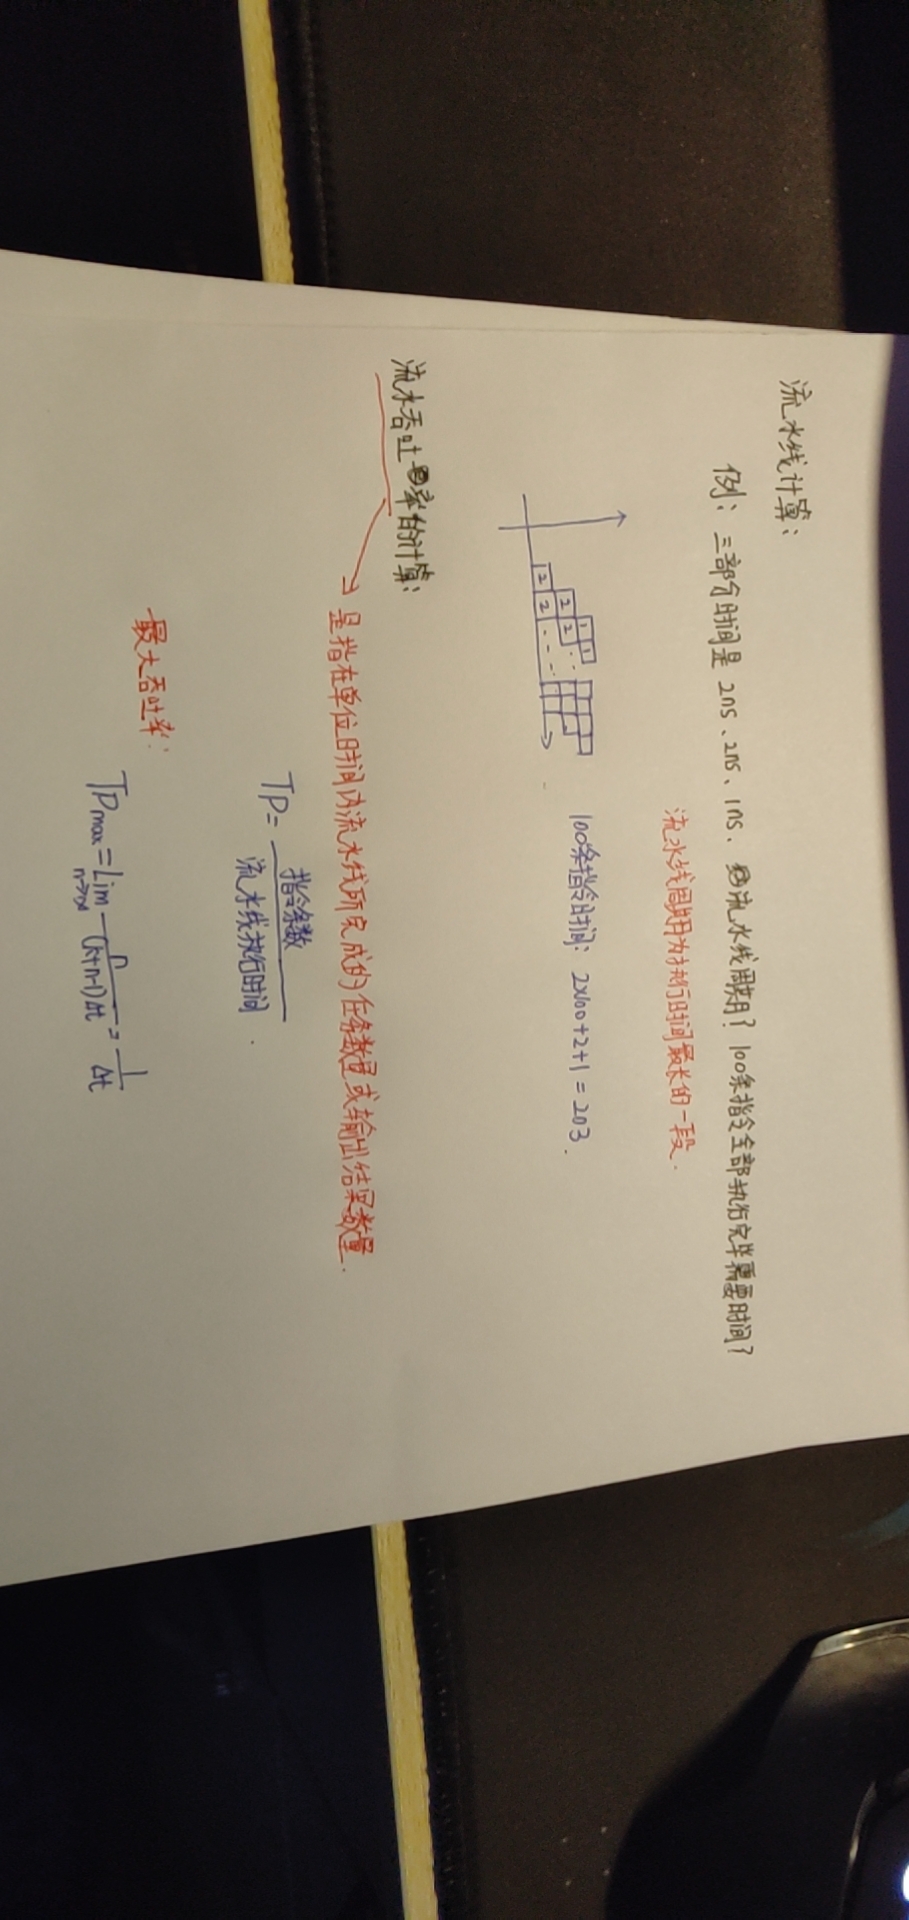 流水线计算：
例：三部分时间是 2ns、2ns、1ns. 流水线周期？100条指令全部执行完毕需要时间？
流水线周期为执行时间最长的一段.
1 1
2 2
2 2
100条指令时间：2×100+2+1=203.
流水吞吐率的计算：
是指在单位时间内流水线所完成的任务数量或输出结果数量.
TP= 指令条数
流水线执行时间.
最大吞吐率：
TPmax = Lim n→∞ n/(k+n-1)Δt = 1/Δt